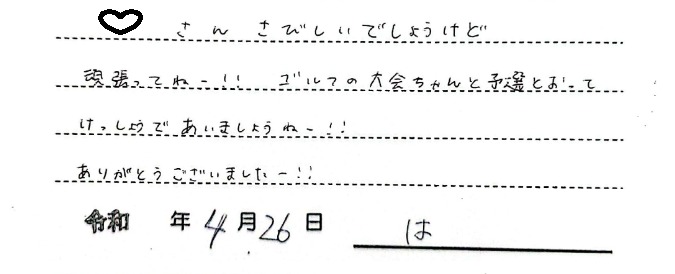 ♡ さん さびしいでしょうけど
頑張ってねー!! ゴルフの大会ちゃんと予選とおって
けっしょうであいましょうねー!!
ありがとうございましたー!!
令和 年 4月 26日 は